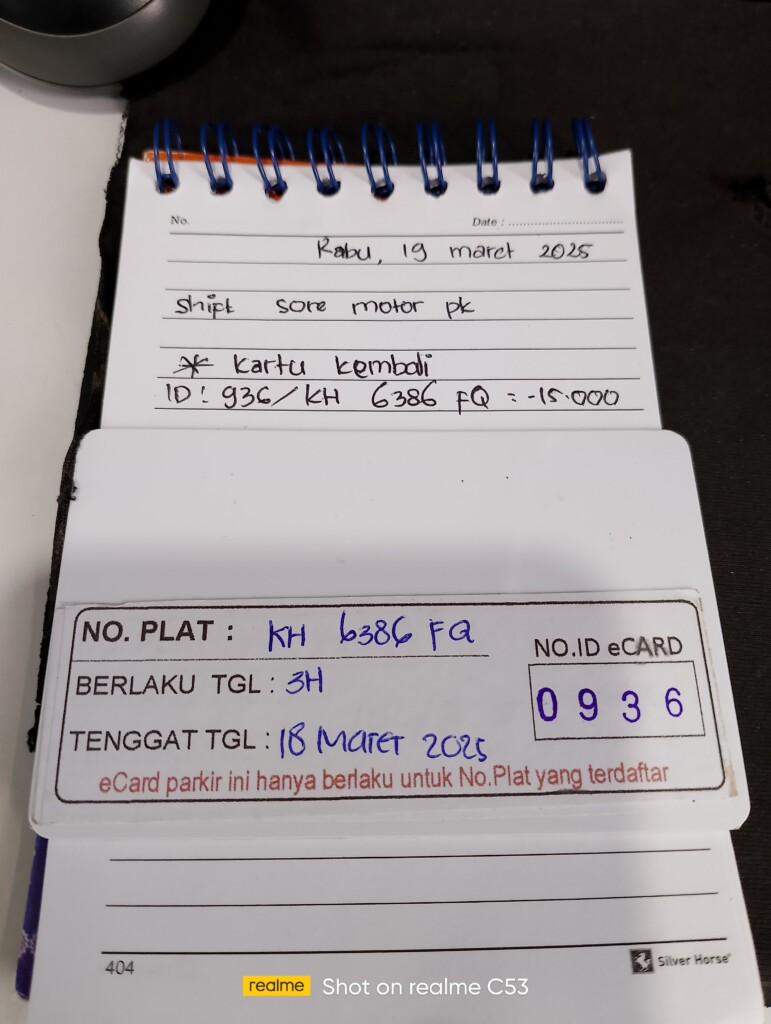 No.
Date : ..............................
Rabu, 19 maret 2025
Shift sore motor pk
* kartu kembali
ID: 936/KH 6386 FQ = -15.000
NO. PLAT : KH 6386 FQ
BERLAKU TGL : 3H
TENGGAT TGL : 18 Maret 2025
NO.ID eCARD
0936
eCard parkir ini hanya berlaku untuk No.Plat yang terdaftar
404
Silver Horse
realme Shot on realme C53